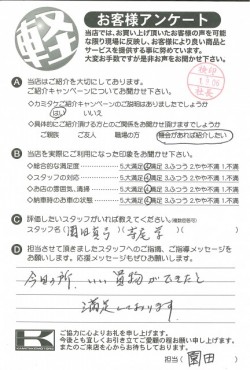 軽
お客様アンケート
当店では、お買い上げ頂いたお客様の声を可能
な限り現場に反映し、お客様により良い商品と
サービスを提供する事に努めています。
大変お手数ですが是非お声をお聞かせ下さい。
Ⓐ 当店はご紹介を大切にしております。
ご紹介キャンペーンについてお聞かせ下さい。
◇カミタケご紹介キャンペーンのご説明はありましたでしょうか
はい いいえ
◇具体的にご紹介頂ける方とのご関係をお聞かせ下さい
ご親戚 ご友人 職場の方 機会があれば紹介したい
Ⓑ 当店を実際にご利用になった印象をお聞かせ下さい。
◇総合的な満足度 5.大満足 4.満足 3.ふつう 2.やや不満 1.不満
◇スタッフの対応 5.大満足 4.満足 3.ふつう 2.やや不満 1.不満
◇お店の雰囲気、清掃 5.大満足 4.満足 3.ふつう 2.やや不満 1.不満
◇納車時のお車の状態 5.大満足 4.満足 3.ふつう 2.やや不満 1.不満
Ⓒ 評価したいスタッフがいれば教えてください。(複数回答可)
スタッフ名( )( )( )
Ⓓ 担当させて頂きましたスタッフへのご指摘、ご指導メッセージを
お願いします。応援メッセージもぜひお願いします。
今日の所、いい買物ができたと
満足しております。
ご協力に心よりお礼を申し上げます。
今後とも宜しくお引き立てご愛顧の程お願い申し上げます。
またのご来店を心からお待ちしております。
担当( 園田 )